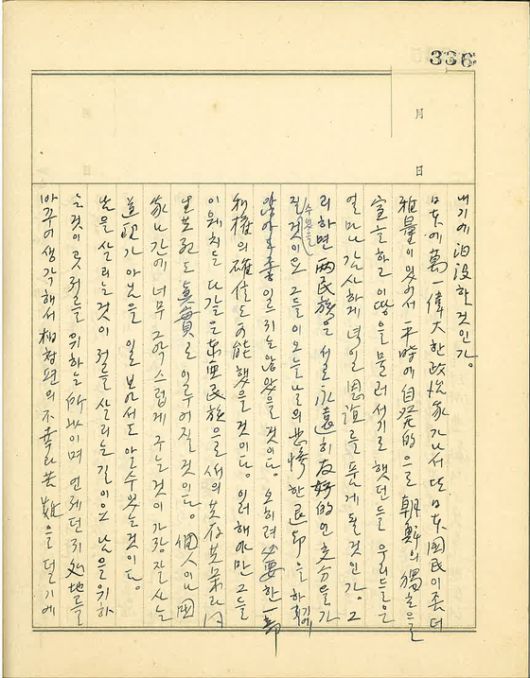 336
月
日
내기에 汨沒할 것인가.
日本에 萬一 偉大한 政治家가 나서 또 日本國民이 좀 더
雅量이 있어서 平時에 自発的으로 朝鮮의 獨立을
宣言하고 이 땅을 물러서기로 했던들 우리들은
얼마나 감사하게 녁일 恩誼를 품게 될 것인가. 그
리하면 両民族은 서로 永遠히 友好的인 것을
질 것이오 그들이 오늘날의 悲惨한 退却을 하지
않아도 좋을 것이다. 오히려 必要한
利権의 確保도 可能했을 것이다. 이러해야만 그들
이 외치는 東亜民族으로서의 共存共栄
도 真實로 이루어질 것이다. 個人이나 國
家나 간에 너무 스럽게 구는 것이 가장 잘 사는
道理가 아님을 일로 보아서도 알 수 있는 것이다.
남을 살리는 것이 저를 살리는 길이오 남을 위하
는 것이 곳 저를 위하는 所以이며 언제던지 處地를
바꾸어 생각해서 相對편의 不幸과 苦難을 덜기에